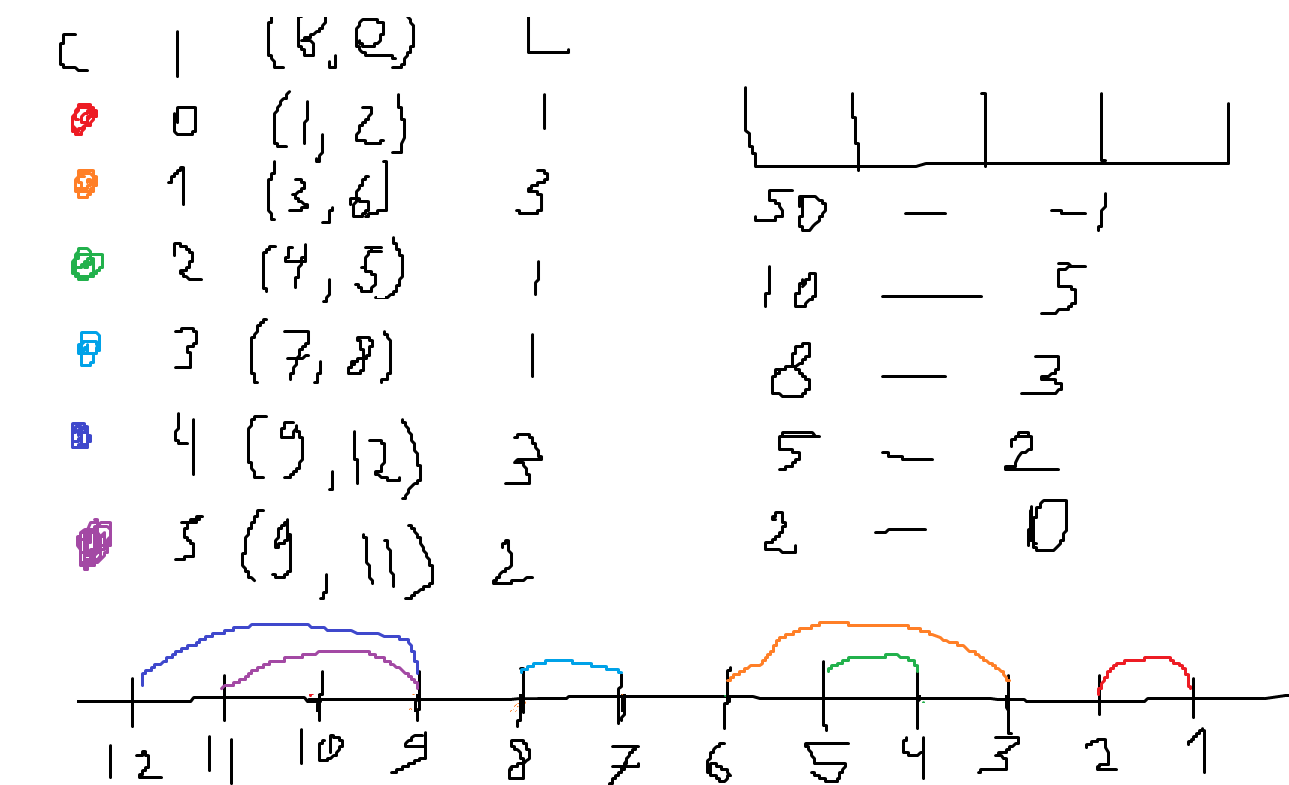 C | (b, e) L
0 (1, 2) 1
1 (3, 6] 3
2 (4, 5) 1
3 (7, 8) 1
4 (9, 12) 3
5 (9, 11) 2
50 — -1
10 — 5
8 — 3
5 — 2
2 — 0
12 11 10 9 8 7 6 5 4 3 2 1